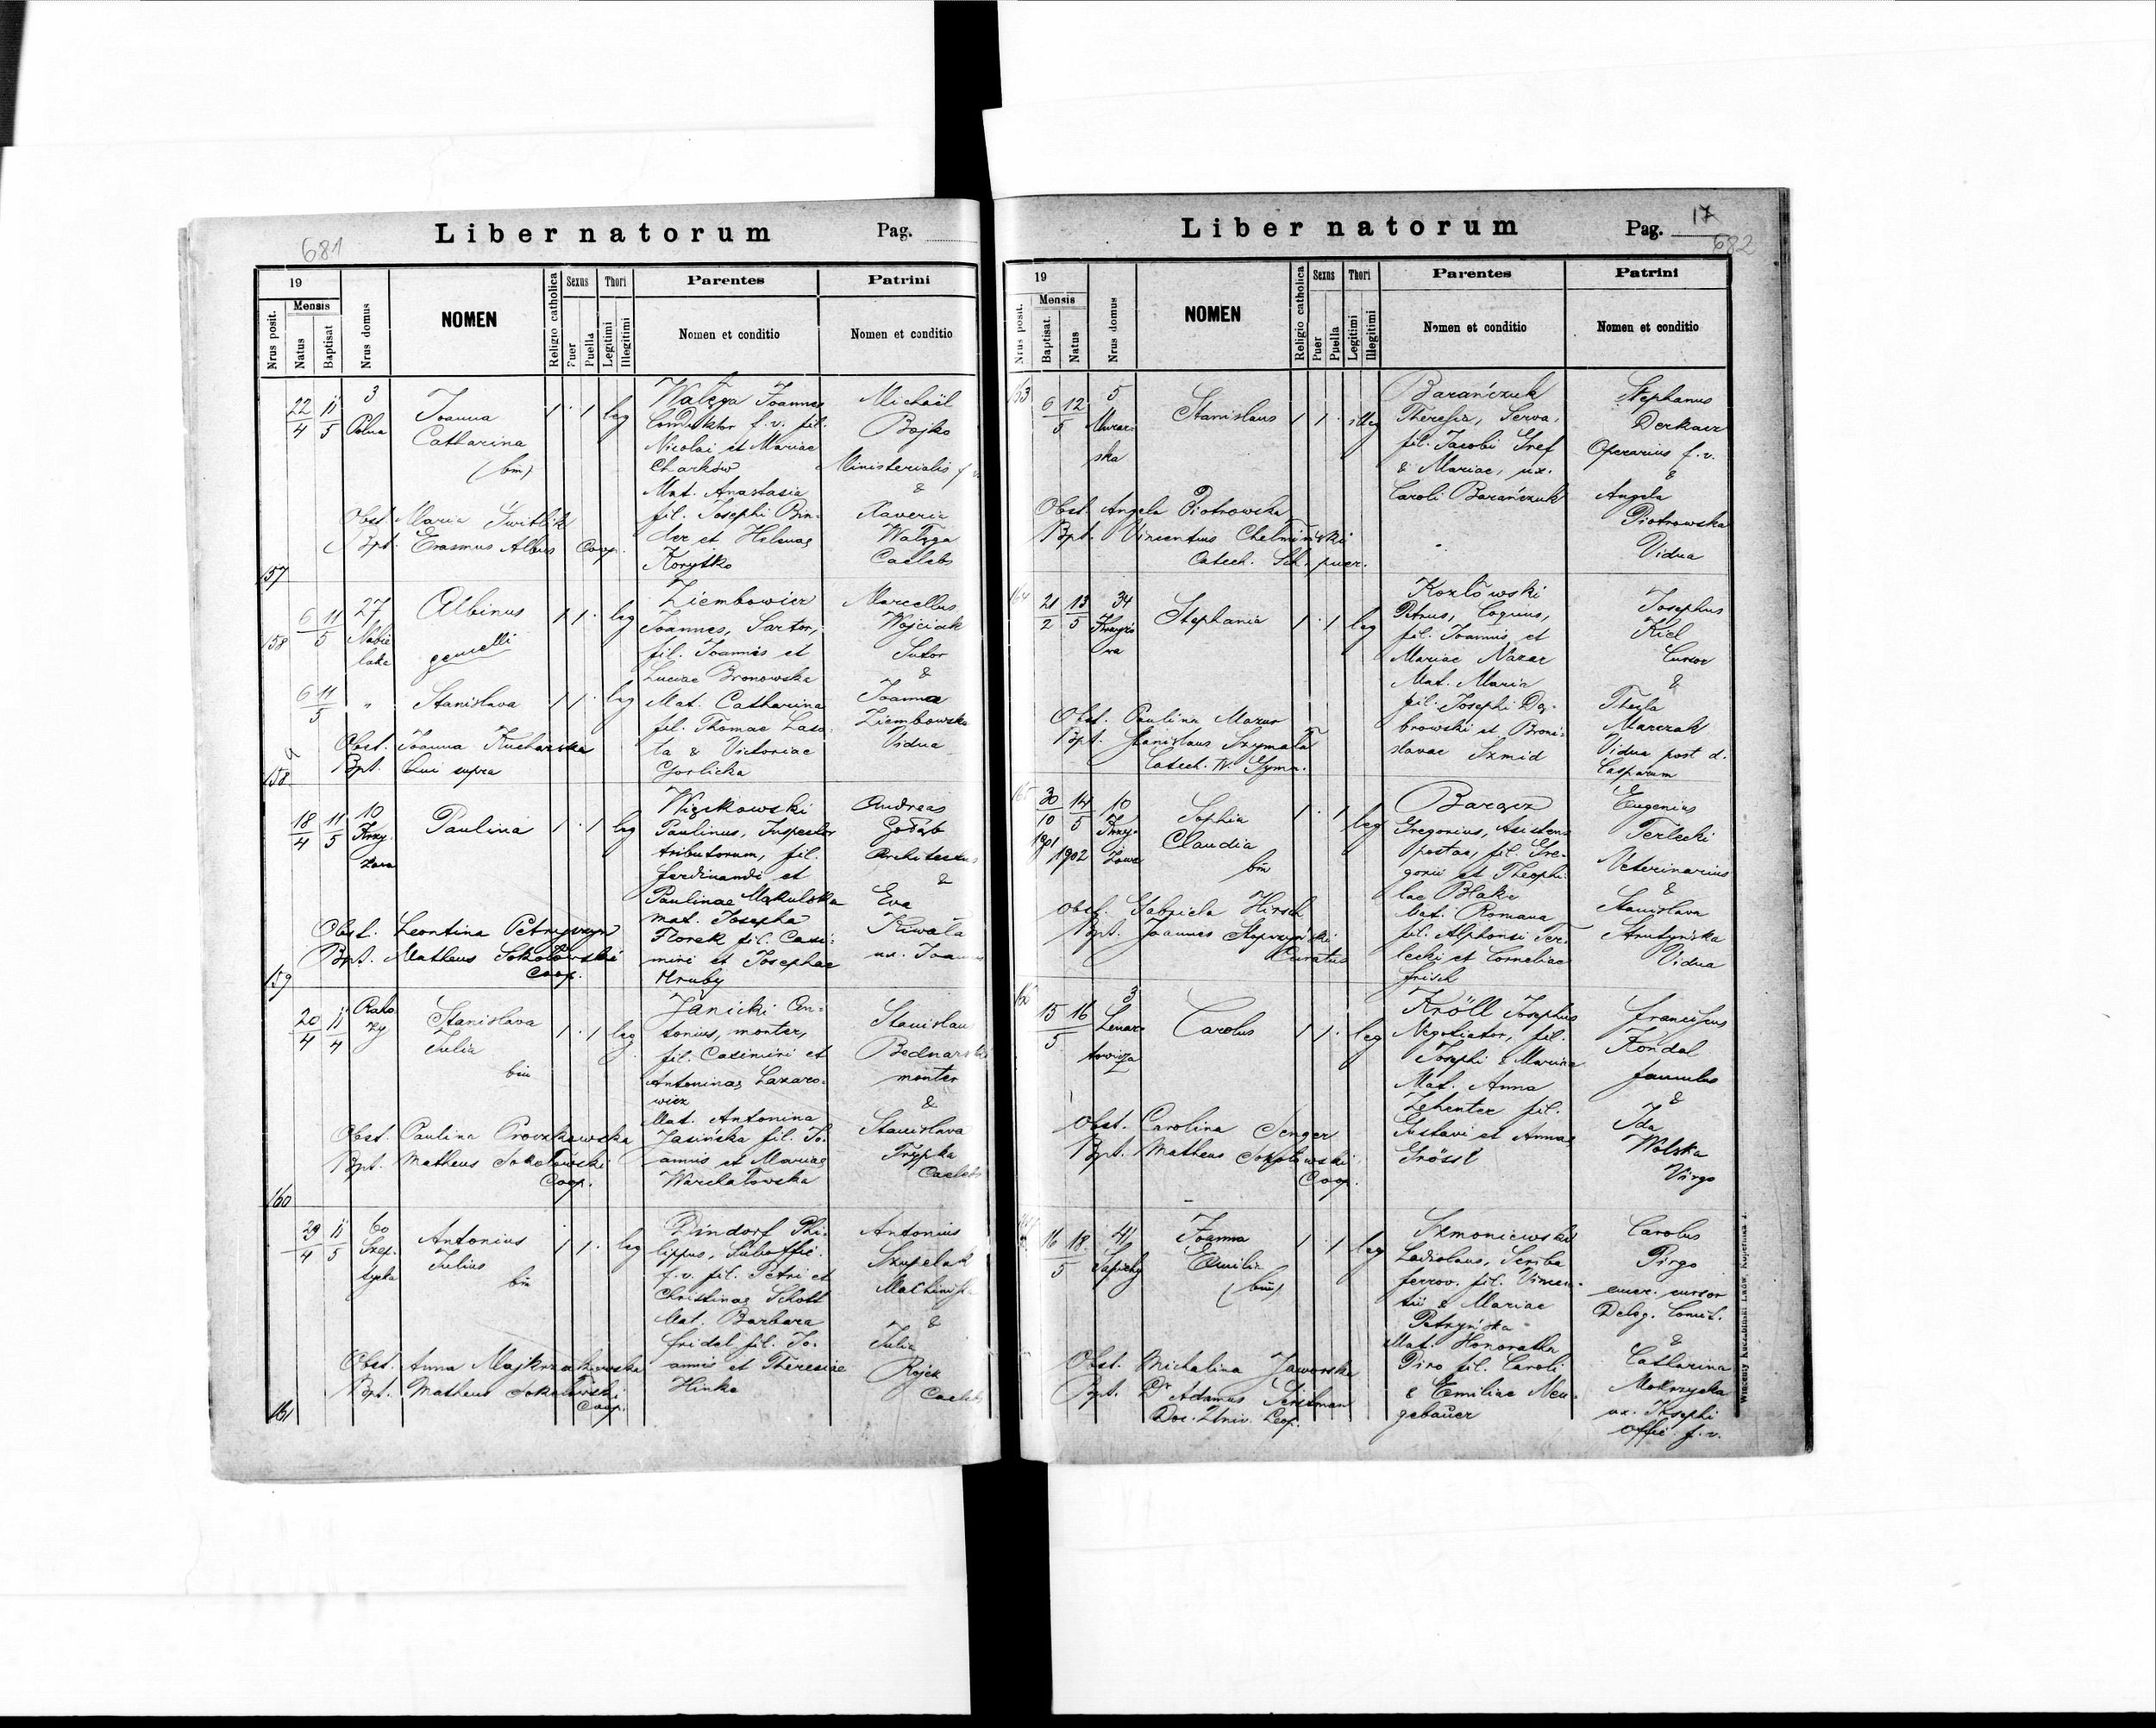 681
Liber natorum Pag.
19
Nrus posit.
Mensis
Natus
Baptisat
Nrus domus
NOMEN
Religio catholica
Sexus
Puer
Puella
Thori
Legitimi
Illegitimi
Parentes
Nomen et conditio
Patrini
Nomen et conditio
157
22/4 11/5
3
Polna
Joanna
Catharina
(bin)
1 · 1 leg
Walęga Joannes
Conduktor f. v. fil.
Nicolai et Mariae
Charków
Mat. Anastasia
fil. Josephi Bin-
der et Helenae
Korytko
Michaël
Bojko
Ministerialis f. v.
&
Xaveria
Walęga
Caelebs
Obst. Maria Switlik
Bpt. Erasmus Albus Coop.
158
6 11/5
27
Na bie
lake
Albinus
gemelli
1 1 · leg
Ziembowicz
Joannes, Sartor,
fil. Joannis et
Luciae Bronowska
Marcellus
Wojciak
Sutor
&
158 a
6 11/5
"
Stanislava
1 1 · leg
Mat. Catharina
fil. Thomae Laso-
ta & Victoriae
Gorlicka
Joanna
Ziembowska
Vidua
Obst. Joanna Kucharska
Bpt. Qui supra
159
18/4 11/5
10
Krzy-
żowa
Paulina
1 · 1 leg
Więckowski
Paulinus, Inspector
tributorum, fil.
Ferdinandi et
Paulinae Makulska
mat. Josepha
Florek fil. Casi-
miri et Josephae
Hruby
Andreas
Gołąb
Architectus
&
Eva
Kiwała
ux. Joannis
Obst. Leontina Petryszyn
Bpt. Matheus Sokołowski
Coop.
160
20/4 11/4
Stanislava
Julia
bin
1 · 1 leg
Janicki An-
tonius, monter,
fil. Casimiri et
Antoninae Lazaro-
wicz
Mat. Antonina
Jasińska fil. Jo-
annis et Mariae
Warchałowska
Stanislaus
Bednarski
monter
&
Stanislava
Trypka
Caelebs
Obst. Paulina Proszkowska
Bpt. Matheus Sokołowski
Coop.
161
29/4 11/5
60
Szep-
tycka
Antonius
Julius
bin
1 1 · leg
Dindorf Phi-
lippus, Suboffic.
f. v. fil. Petri et
Christinae Schott
Mat. Barbara
Fridel fil. Jo-
annis et Theresiae
Hinke
Antonius
Szupelak
Machinista
&
Julia
Rojek
Caelebs
Obst. Anna Majkrzakowska
Bpt. Matheus Sokołowski
Coop.
Liber natorum Pag. 17
682
19
Nrus posit.
Mensis
Baptisat.
Natus
Nrus domus
NOMEN
Religio catholica
Sexus
Puer
Puella
Thori
Legitimi
Illegitimi
Parentes
Nomen et conditio
Patrini
Nomen et conditio
163
6 12/5
5
Murar-
ska
Stanislaus
1 1 · illeg
Barańczuk
Theresia, Serva,
fil. Jacobi Gref
& Mariae, ux.
Caroli Barańczuk
Stephanus
Derkacz
Operarius f. v.
&
Angela
Piotrowska
Vidua
Obst. Angela Piotrowska
Bpt. Vincentius Chelmiński
Catech. Sch. puer.
164
21/2 13/5
34
Stephania
1 · 1 leg
Kozłowski
Petrus, Coquus,
fil. Joannis et
Mariae Nazar
Mat. Maria
fil. Josephi Dą-
browski et Broni-
slavae Szmid
Josephus
Kiel
Cursor
&
Thecla
Marczak
Vidua post d.
Casparum
Obst. Paulina Mazur
Bpt. Stanislaus Szymała
Catech. IV. Gymn.
165
30/10 14/5
1901 1902
10
Krzy-
żowa
Sophia
Claudia
bin
1 · 1 leg
Barącz
Gregorius, Asistens
postae, fil. Gre-
gorii et Theophi-
lae Blake
Mat. Romana
fil. Alphonsi Ter-
lecki et Corneliae
Frisch
Eugenius
Terlecki
Veterinarius
&
Stanislava
Strutyńska
Vidua
Obst. Gabriela Hirsch
Bpt. Joannes
Curatus
15 16/5
3
Lenar-
towicza
Carolus
1 1 · leg
Kröll Josephus
Negotiator, fil.
Josephi & Mariae
Mat. Anna
Zehenter fil.
Gustavi et Annae
Grössl
Franciscus
Kondol
famulus
&
Ida
Wolska
Virgo
Obst. Carolina Senger
Bpt. Matheus Sokołowski
Coop.
16 18/5
41
Sapiehy
Joanna
Emilia
(bin)
1 · 1 leg
Szmoniewski
Ladislaus, Scriba
ferrov. fil. Vincen-
tii & Mariae
Petryńska
Mat. Honoratha
Piro fil. Caroli
& Emiliae Neu-
gebauer
Carolus
Pirgo
emer. cursor
Deleg. Comit.
&
Catharina
Mokrzycka
ux. Josephi
Offic. f. v.
Obst. Michalina Jaworska
Bpt. Dr Adamus Gerstman
Doc. Univ. Leop.